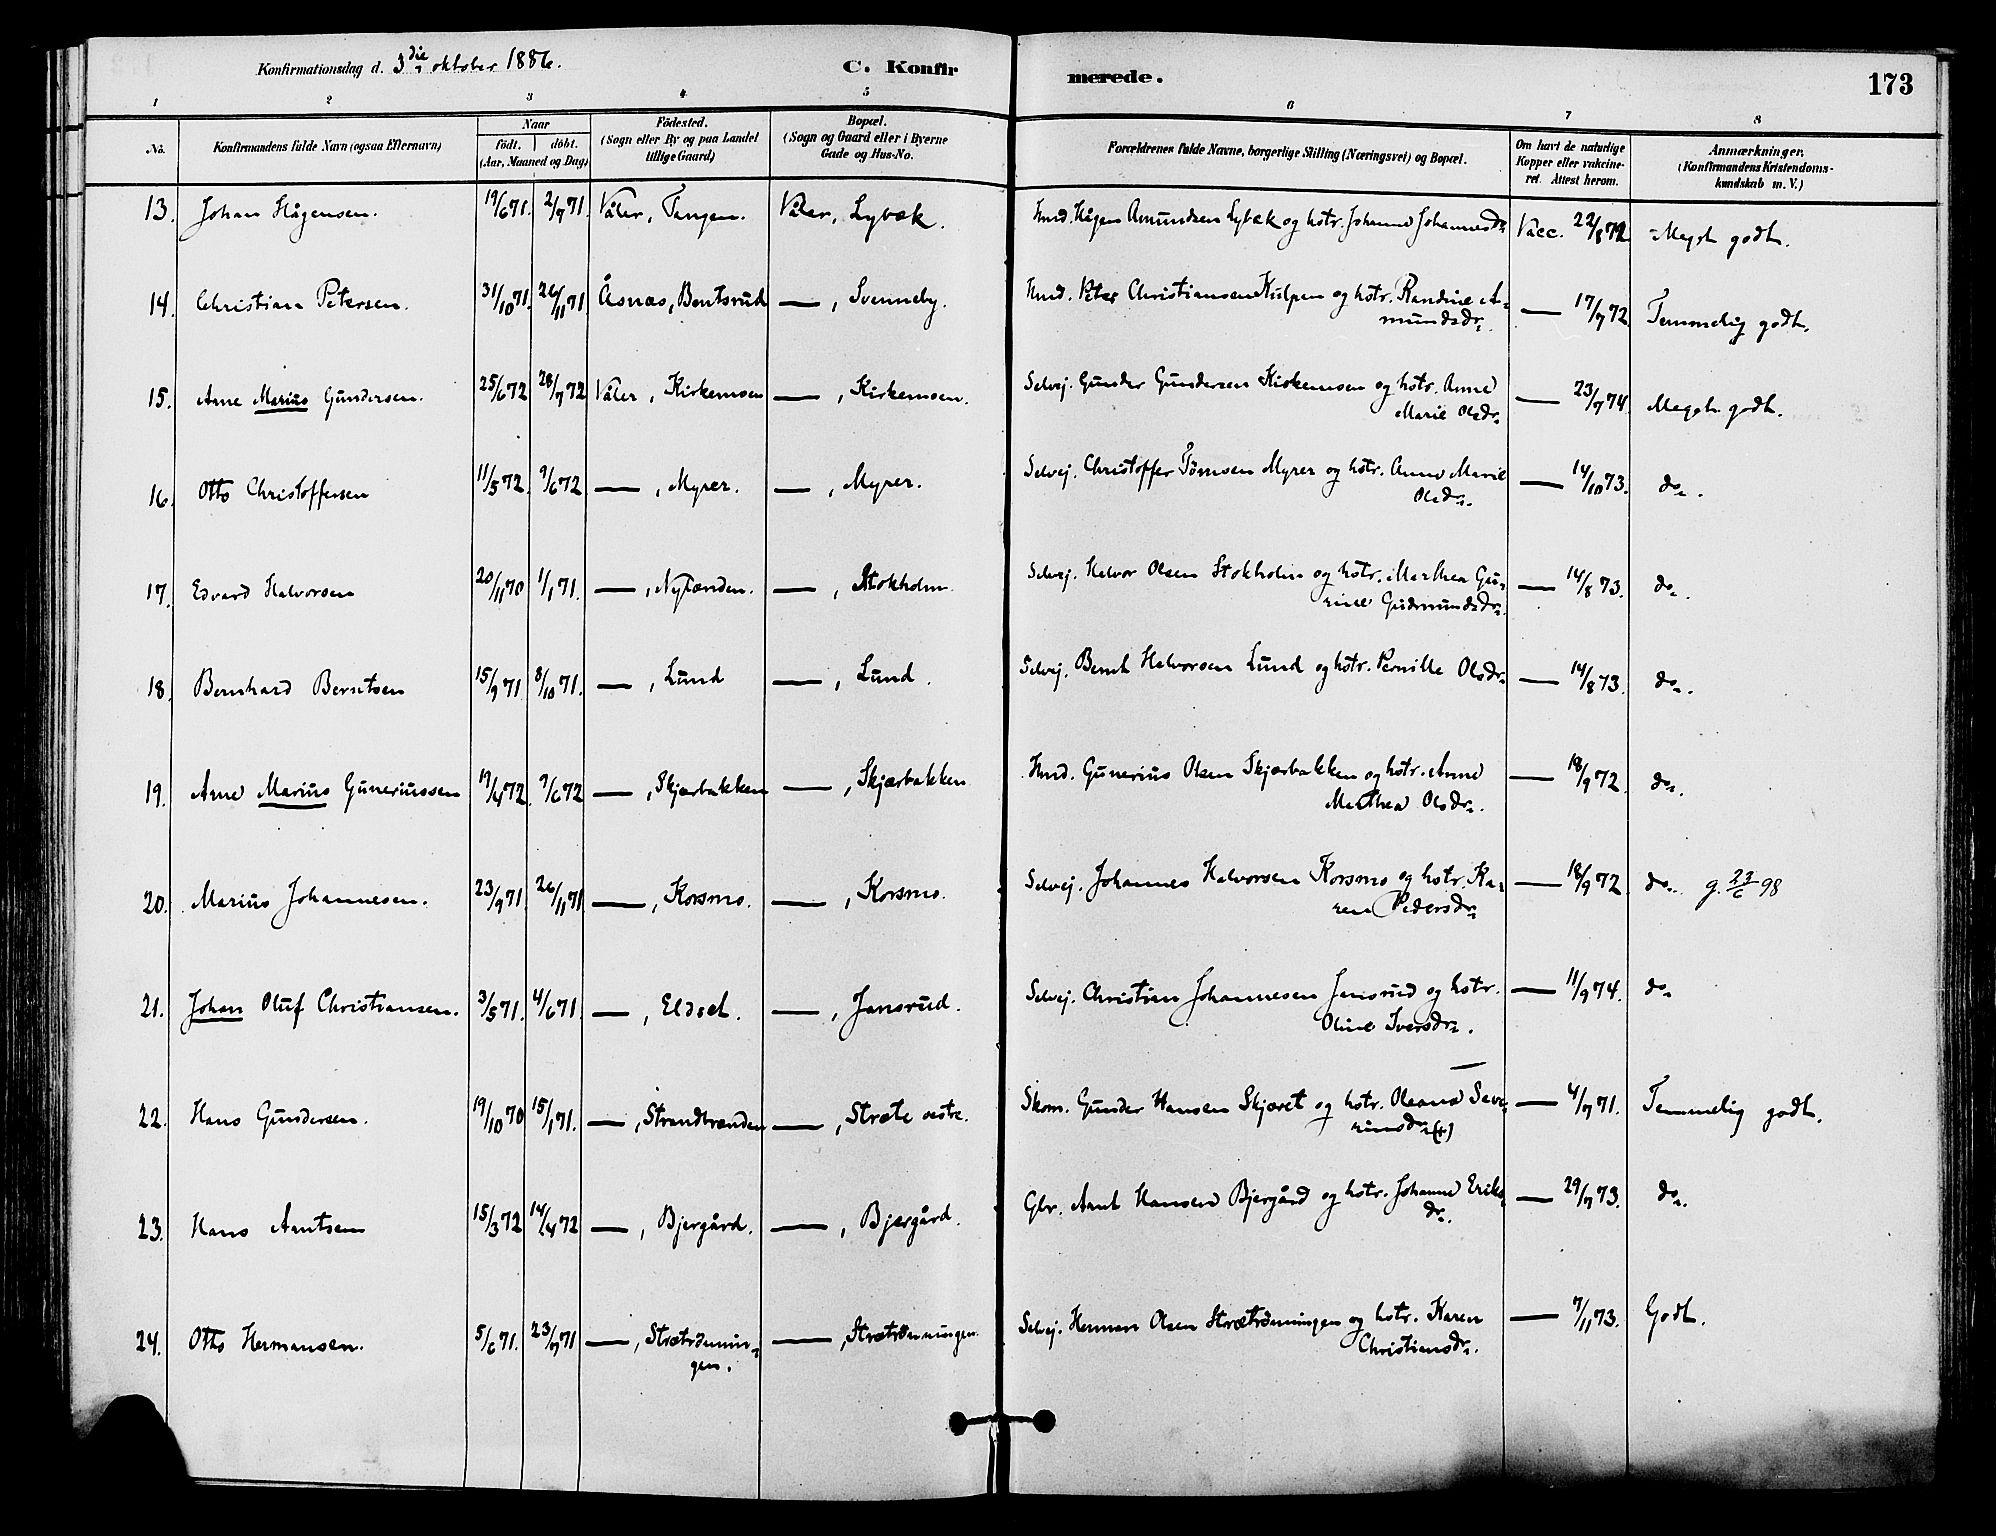 Konfirmationsdag d. 3die oktober 1886. C. Konfirmerede. 173
1 2 3 4 5 6 7 8
No. Konfirmandens fulde Navn (ogsaa Efternavn) Naar födt. döbt. (Aar, Maaned og Dag) Födested. (Sogn eller By og paa Landet tillige Gaard) Bopæl. (Sogn og Gaard eller i Byerne Gade og Hus-No. Forældrenes fulde Navne, borgerlige Stilling (Næringsvei) og Bopæl. Om havt de naturlige Kopper eller vakcineret. Attest herom. Anmærkninger. (Konfirmandens Kristendomskundskab m. V.)
13. Johan Hågensen. 19/6 71. 2/7 71. Våler, Tangen. Våler, Lybæk. Hmd. Hågen Amundsen Lybæk og hstr. Johanne Johannesdr. Vacc. 22/8 72. Meget godt.
14. Christian Petersen. 31/10 71. 26/11 71. Åsnæs, Bentsrud — , Svenneby. Hmd. Peter Christiansen Kulpen og hstr. Randine A-
mundsdr. — 17/7 72. Temmelig godt.
15. Arne Marius Gundersen. 25/6 72 28/7 72 Våler, Kirkemoen — , Kirkemoen. Selvej. Gunder Gundersen Kirkemoen og hstr. Anne
Marie Olsdr. — 23/7 74. Meget godt.
16. Otto Christoffersen 11/5 72. 9/6 72 — , Myrer. — , Myrer. Selvej. Christoffer Tømsen Myrer og hstr. Anne Marie
Olsdr. — 14/10 73. do.
17. Edvard Halvorsen 20/11 70 1/1 71. — , Nylænden. — , Stokholm. Selvej. Halvor Olsen Stokholm og hstr. Marthea Gu-
rine Gudmundsdr. — 14/8 73. do.
18. Bernhard Berntsen 15/9 71 8/10 71. — , Lund — , Lund. Selvej. Bernt Halvorsen Lund og hstr. Pernille Olsdr. — 14/8 73. do.
19. Arne Marius Guneriussen 19/4 72. 9/6 72 — , Skjærbakken — , Skjærbakken Hmd. Gunerius Olsen Skjærbakken og hstr. Anne
Marthea Olsdr. — 18/9 72. do.
20. Marius Johannesen. 23/9 71. 26/11 71 — , Korsmo. — , Korsmo. Selvej. Johannes Halvorsen Korsmo og hstr. Ka-
ren Pedersdr. — 18/9 72. do. g. 23/6 98
21. Johan Oluf Christiansen. 3/5 71. 4/6 71. — , Eldset. — , Jansrud. Selvej. Christian Johannesen Jansrud og hstr.
Oline Iversdr. — 11/9 74. do
22. Hans Gundersen. 19/10 70 15/1 71. — , Strandbrænden — , Stræte østre. Skom. Gunder Hansen Skjæret og hstr. Oleana Seve-
rinsdr. (+) — 4/7 71. Temmelig godt.
23. Hans Arntsen 15/3 72 14/4 72 — , Bjergård. — , Bjergård. Gbr. Arnt Hansen Bjergård og hstr. Johanne Eriks-
dr. — 29/7 73. do.
24. Otto Hermansen. 5/6 71. 23/7 71 — , Strætrønnin-
gen. — , Strætrønningen. Selvej. Herman Olsen Strætrønningen og hstr. Karen
Christiansdr. — 7/11 73. Godt.